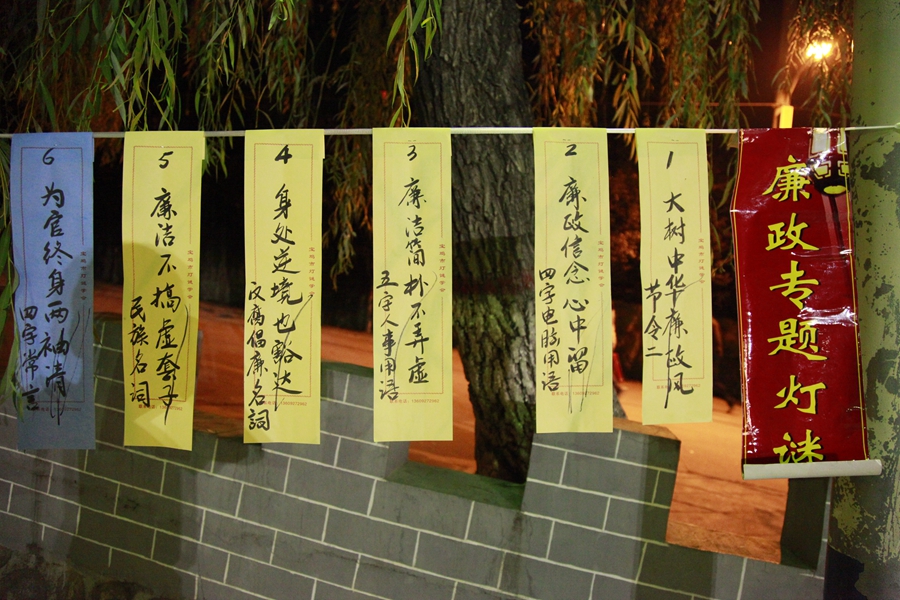 廉政专题灯谜
1
大树中华廉政风
节令二
2
廉政信念心中留
四字电脑用语
3
廉洁简朴不弄虚
五字人事用语
4
身处逆境也豁达
反腐倡廉名词
5
廉洁不搞虚套子
民族名词
6
为官终身两袖清
四字常言